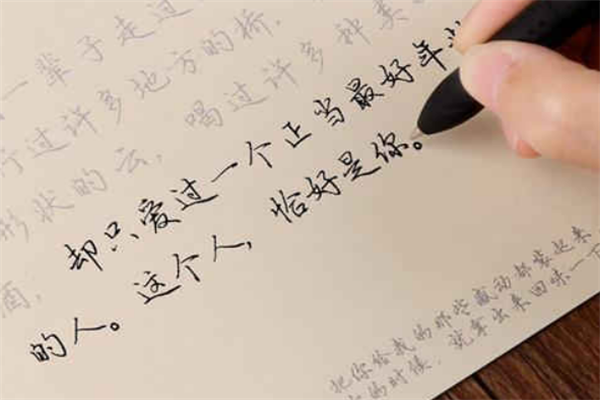 一辈子走过
行过许多地方的桥，
形状的云，喝过许多种类
酒，却只爱过一个正当最好年
的人。这个人，恰好是你。
把你给我的那些感动都装起来
的时候，就拿出来回味一下